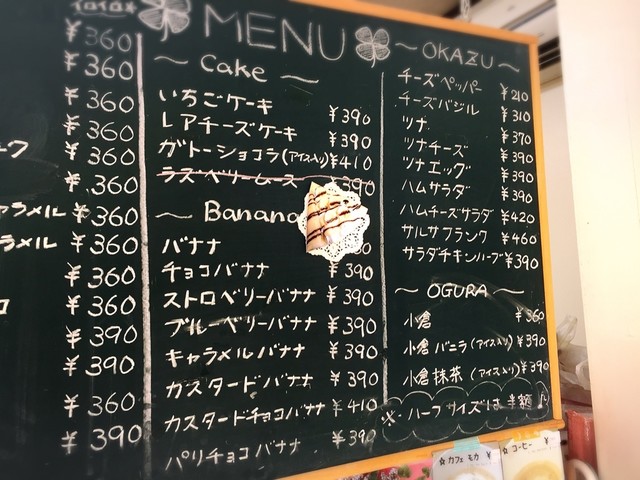 イロイロ
¥360
¥360
¥360
¥360
¥360
¥360
ャラメル ¥360
ラメル ¥360
¥360
¥360
¥390
¥390
¥360
¥390
MENU
～ Cake ～
いちごケーキ ¥390
レアチーズケーキ ¥390
ガトーショコラ(アイス入り) ¥410
ラズベリームース ¥390
～ Banana
バナナ
チョコバナナ ¥390
ストロベリーバナナ ¥390
ブルーベリーバナナ ¥390
キャラメルバナナ ¥390
カスタードバナナ ¥390
カスタードチョコバナナ ¥410
パリチョコバナナ ¥390
～ OKAZU ～
チーズペッパー ¥210
チーズバジル ¥310
ツナ ¥370
ツナチーズ ¥390
ツナエッグ ¥390
ハムサラダ ¥390
ハムチーズサラダ ¥420
サルサフランク ¥460
サラダチキンハーブ ¥390
～ OGURA ～
小倉 ¥360
小倉バニラ(アイス入り) ¥390
小倉抹茶(アイス入り) ¥390
※ハーフサイズは半額♪
☆カフェモカ ¥
☆コーヒー ¥